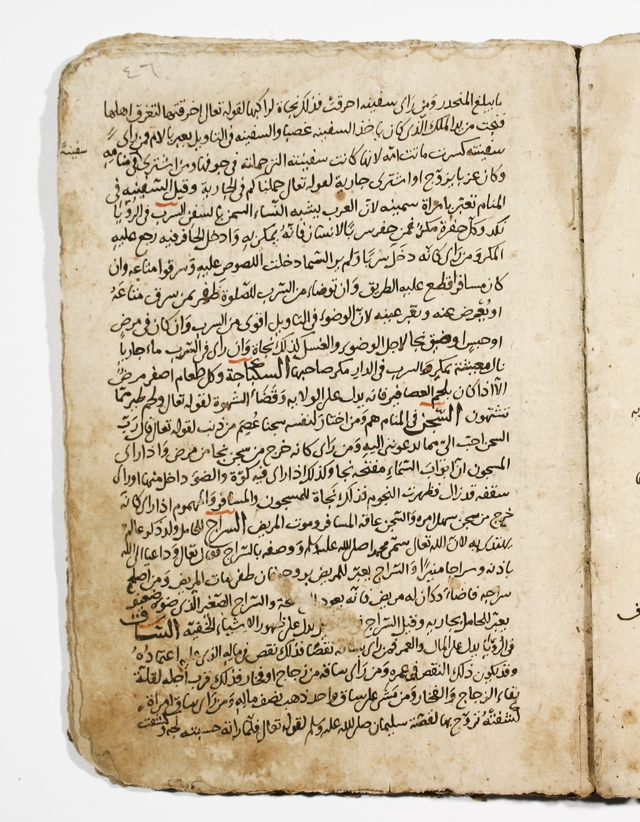 ٤٦
ما يبلغ المنحدر ومن راى سفينه احرقت فذلك نجاة لراكبها لقوله تعالى اخرقتها لتغرق اهلها
فنجت من يد الملك الذى كان ياخذ السفينه غصبا والسفينه فى التاويل يعبر بالام ومن راى
سفينة
سفينته كسرت ماتت امه لانها كانت سفينته التى حملته فى جوفها ومن اشترى
وكان عزبا تزوج او اشترى جارية لقوله تعالى حملناكم فى الجارية وقيل السفينه فى
المنام تعبر بامراة سمينه لان العرب يشبه النساء السمن بالسفن السرب فى الرؤيا
نكد وكل حفرة مكر فمن حفر سربا لانسان فانه يمكر به واذا دخل الحافر فيه رجع عليه
المكر ومن راى كانه دخل سربا ولم ير السما دخلت اللصوص عليه وسرقوا متاعه وان
كان مسافرا قطع عليه الطريق وان توضاء من السرب للصلوة ظفر بمن سرق متاعه
او يعوض عنه وتقر عينه لان الوضوء فى التاويل اقوى من السرب وان كان فى مرض
او حبس او ضيق نجا لاجل الوضوء والغسل كذلك نجاة وان راى فى السرب ماء جاريا
نال معيشة بمكر والسرب فى الدار مكر صاحبها السكباجة وكل طعام اصفر مرض
الا اذا كان بلحم العصافير فانه يدل على الولايه وقضا الشهوة لقوله تعالى ولحم طير مما
يشتهون السجن فى المنام هم ومن اختار لنفسه سجنا عصم من ذنب لقوله تعالى قال رب
السجن احب الى مما يدعوننى اليه ومن راى كانه خرج من سجن نجا من مرض واذا راى
المسجون ان ابواب السماء مفتحه نجا وكذلك اذا راى فيه كوة والضوء داخل منها او راى
سقفه قد زال وظهرت النجوم فذلك نجاة للمسجون والمسافر والمهموم اذا راى كانه
خرج من سجن سهل امره والسجن عاقه المسافر وموت المريض السراج للحامل ولد ذكر عالم
لان الله تعالى سمى محمدا صلى الله عليه وسلم ووصفه بالسراج فقال تعالى وداعيا الى الله
باذنه وسراجا منيرا والسراج يعبر للمريض بروحه فان طفى مات المريض ومن اصلح
سراجه فاضاء وكان له مريض فانه يعود والسراج الصغير الذى ضوءه ضعيف
يعبر للحامل بجاريه وقيل السراج يدل على ظهور الاشياء الخفيه الساق
فى الرؤيا يدل على المال والعمر فمن راى بساقه نقصا فذلك نقص فى ماله الذى عليه اعتماده
وقد يكون ذلك النقص فى عمره ومن راى ساقه من زجاج او فخار فذلك قرب اجله لقلة
بقاء الزجاج والفخار ومن مشى على ساق واحد ذهب نصف ماله ومن راى ساق امراة
كشفته تزوج بها لقصة سليمان صلى الله عليه وسلم لقوله تعالى فلما راته حسبته لجة وكشفت